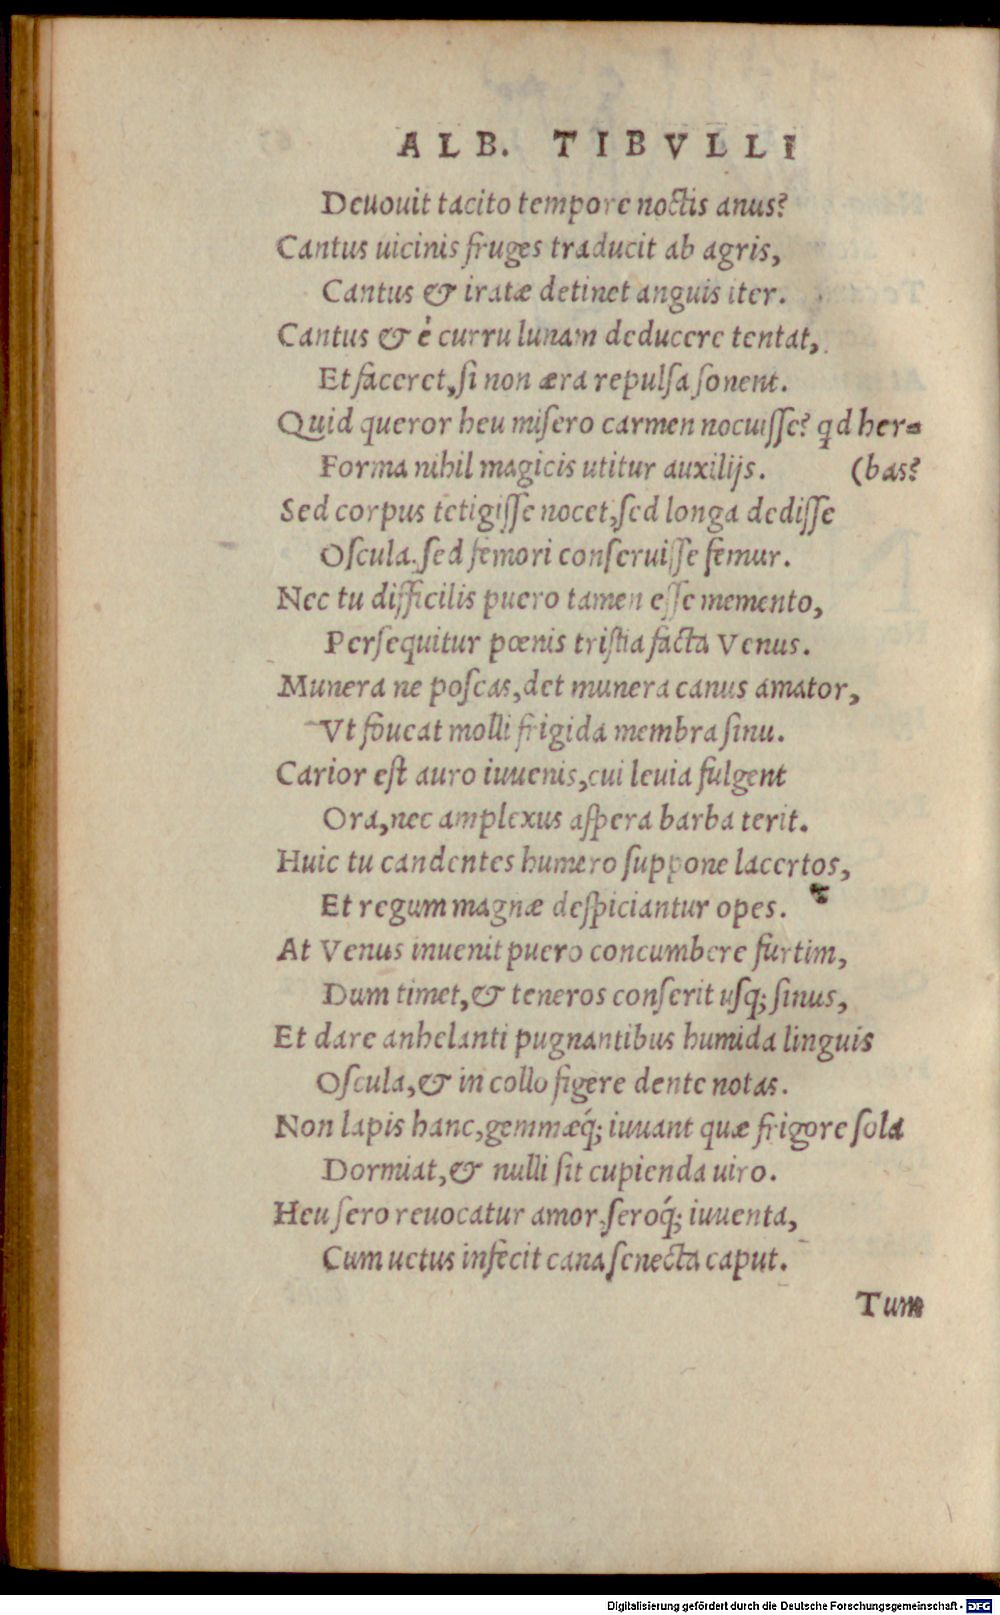 ALB. TIBVLLI
Deuouit tacito tempore noctis anus?
Cantus uicinis fruges traducit ab agris,
Cantus & iratæ detinet anguis iter.
Cantus & è curru lunam deducere tentat,
Et faceret, ſi non æra repulſa ſonent.
Quid queror heu miſero carmen nocuiſſe? qd her-
Forma nihil magicis utitur auxilijs. (bas?
Sed corpus tetigiſſe nocet, ſed longa dediſſe
Oſcula, ſed femori conſeruiſſe femur.
Nec tu difficilis puero tamen eſſe memento,
Perſequitur pœnis triſtia facta Venus.
Munera ne poſcas, det munera canus amator,
Vt foueat molli frigida membra ſinu.
Carior eſt auro iuuenis, cui leuia fulgent
Ora, nec amplexus aſpera barba terit.
Huic tu candentes humero ſuppone lacertos,
Et regum magnæ deſpiciantur opes.
At Venus inuenit puero concumbere furtim,
Dum timet, & teneros conſerit uſq; ſinus,
Et dare anhelanti pugnantibus humida linguis
Oſcula, & in collo figere dente notas.
Non lapis hanc, gemmæq́; iuuant quæ frigore ſola
Dormiat, & nulli ſit cupienda uiro.
Heu ſero reuocatur amor, ſeroq́; iuuenta,
Cum uetus infecit cana ſenecta caput.
Tum
Digitalisierung gefördert durch die Deutsche Forschungsgemeinschaft - DFG